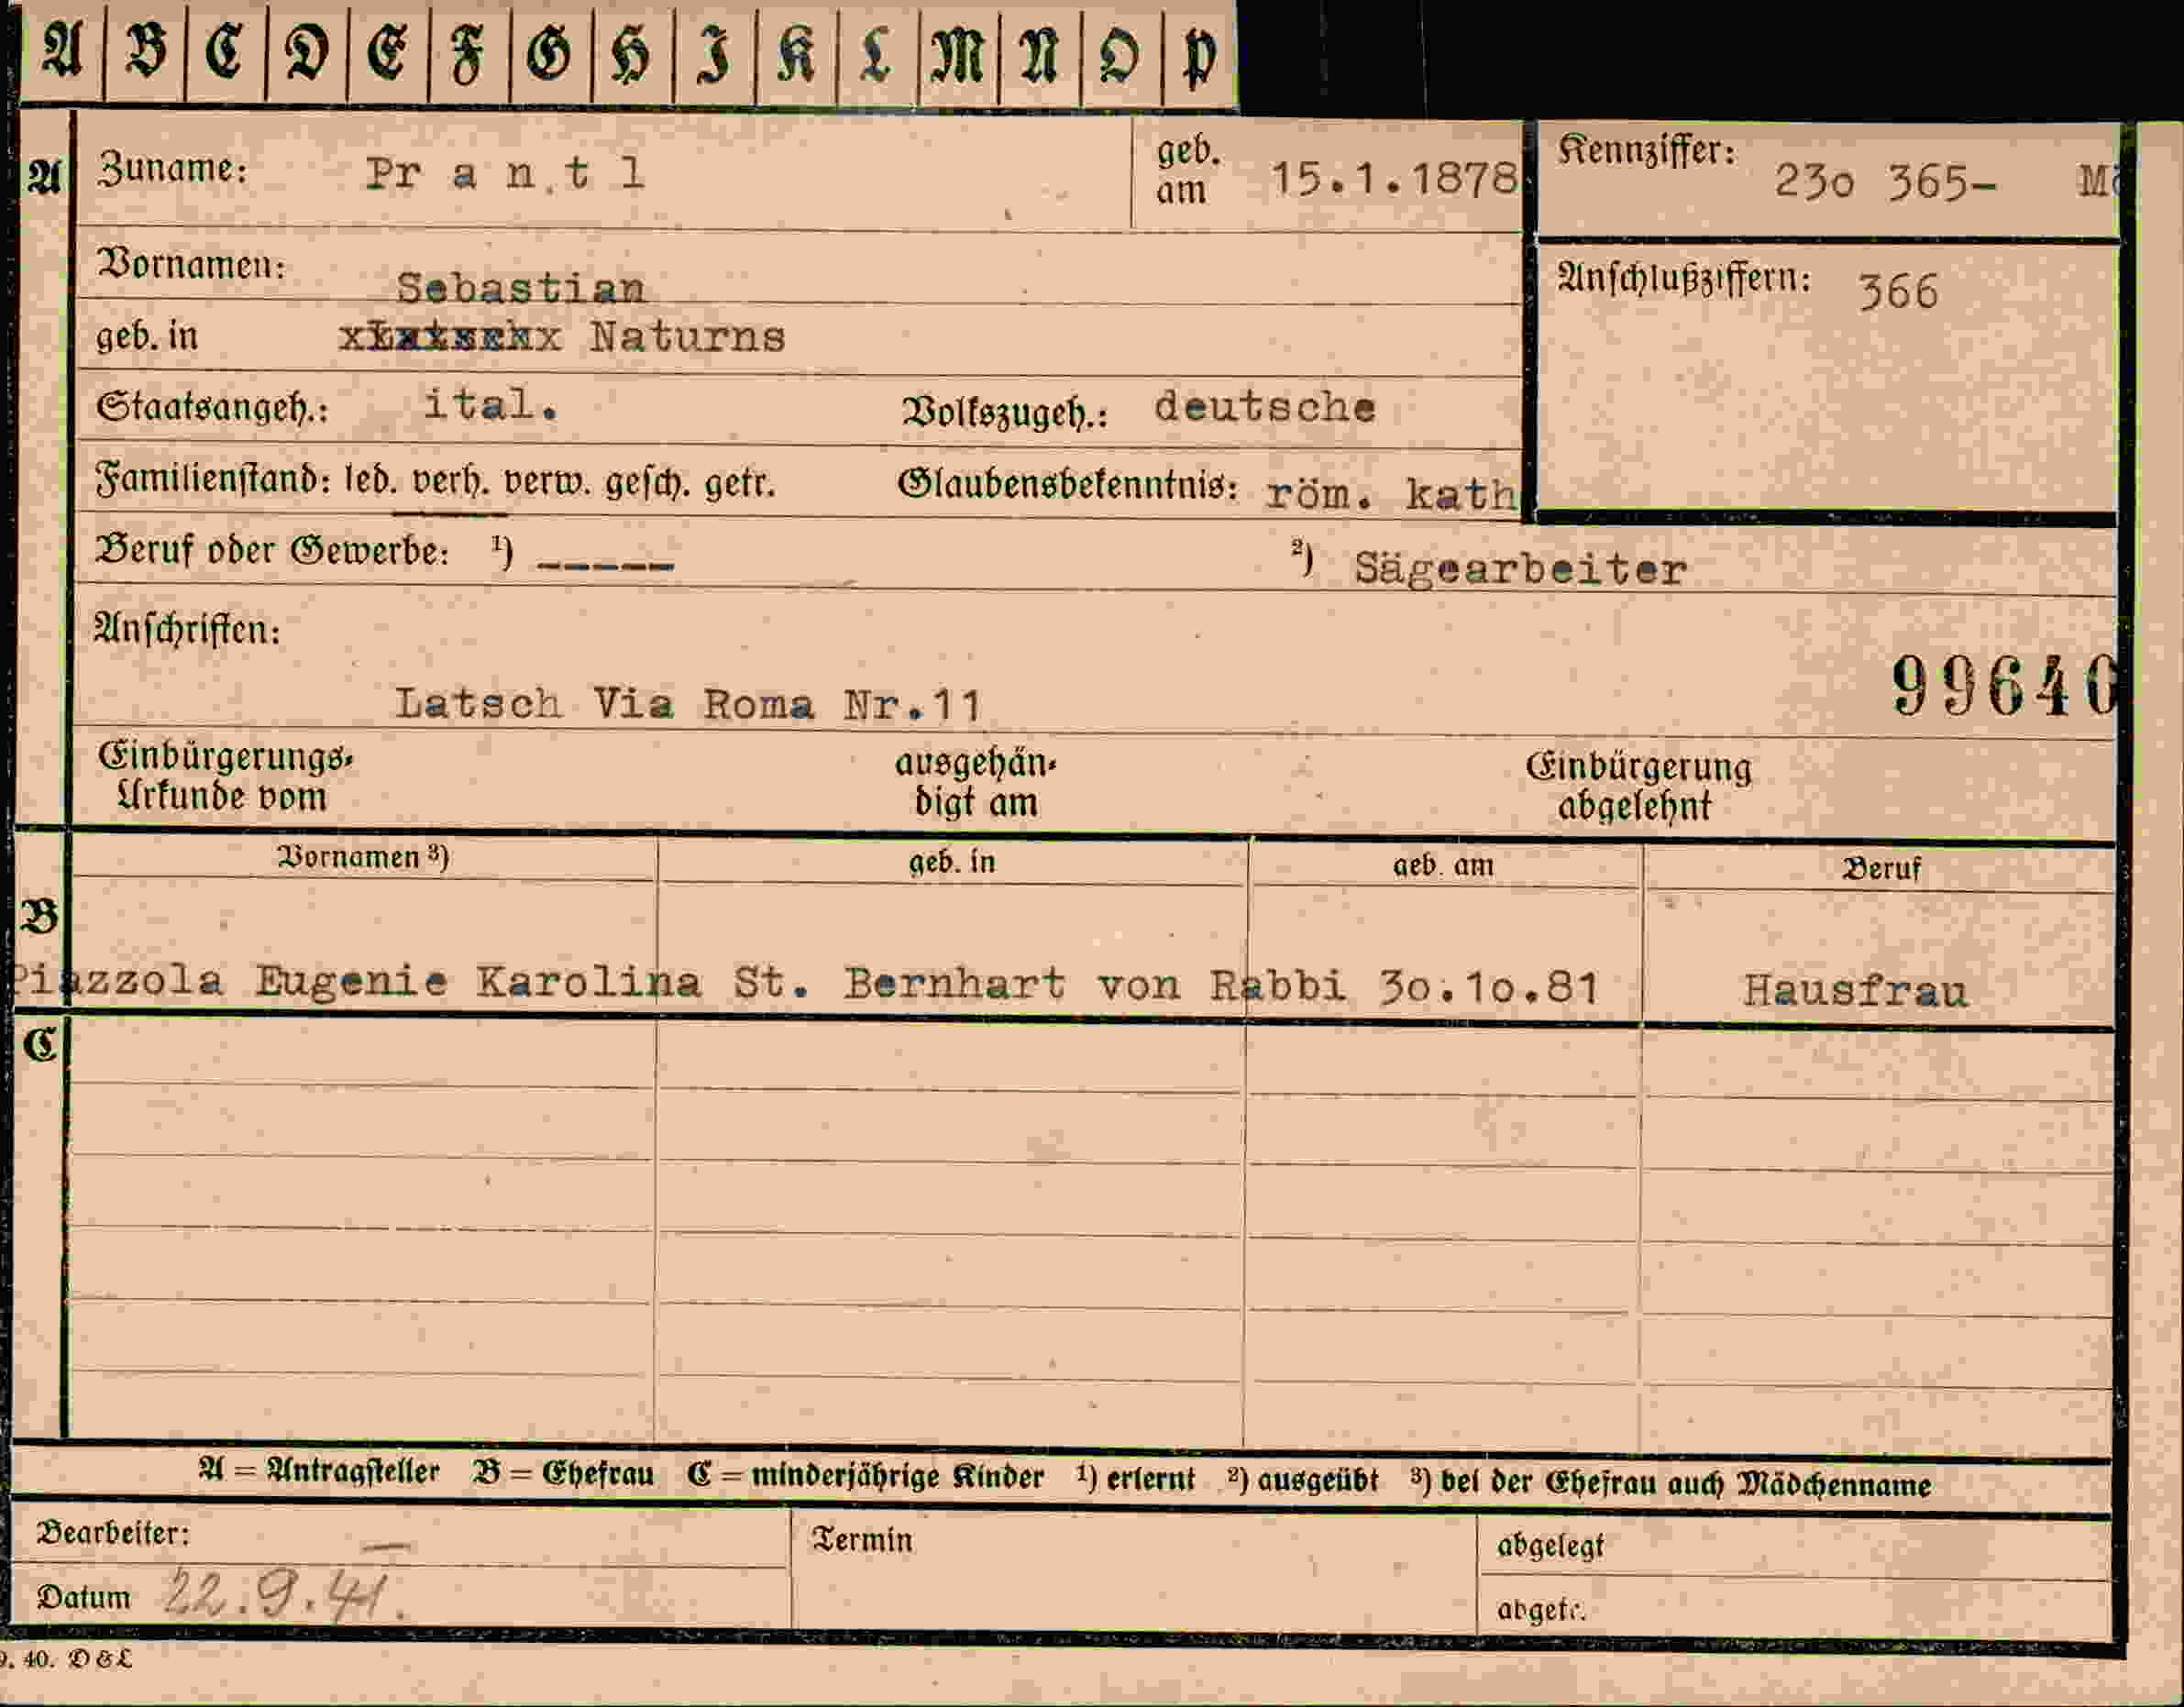 A B C D E F G H I K L M N O P
A Zuname: Pr a n t l geb. am 15.1.1878 Kennziffer: 23o 365-
Vornamen: Sebastian Anschlußziffern: 366
geb. in Naturns
Staatsangeh.: ital. Volkszugeh.: deutsche
Familienstand: led. verh. verw. gesch. getr. Glaubensbekenntnis: röm. kath
Beruf oder Gewerbe: ¹) ----- ²) Sägearbeiter
Anschriften:
99640
Latsch Via Roma Nr.11
Einbürgerungs- ausgehän- Einbürgerung
Urkunde vom digt am abgelehnt
Vornamen ³) geb. in geb. am Beruf
B
Piazzola Eugenie Karolina St. Bernhart von Rabbi 3o.1o.81 Hausfrau
C
A = Antragsteller B = Ehefrau C = minderjährige Kinder ¹) erlernt ²) ausgeübt ³) bei der Ehefrau auch Mädchenname
Bearbeiter: — Termin abgelegt
Datum 22.9.41. abgetr.
9. 40. D & L